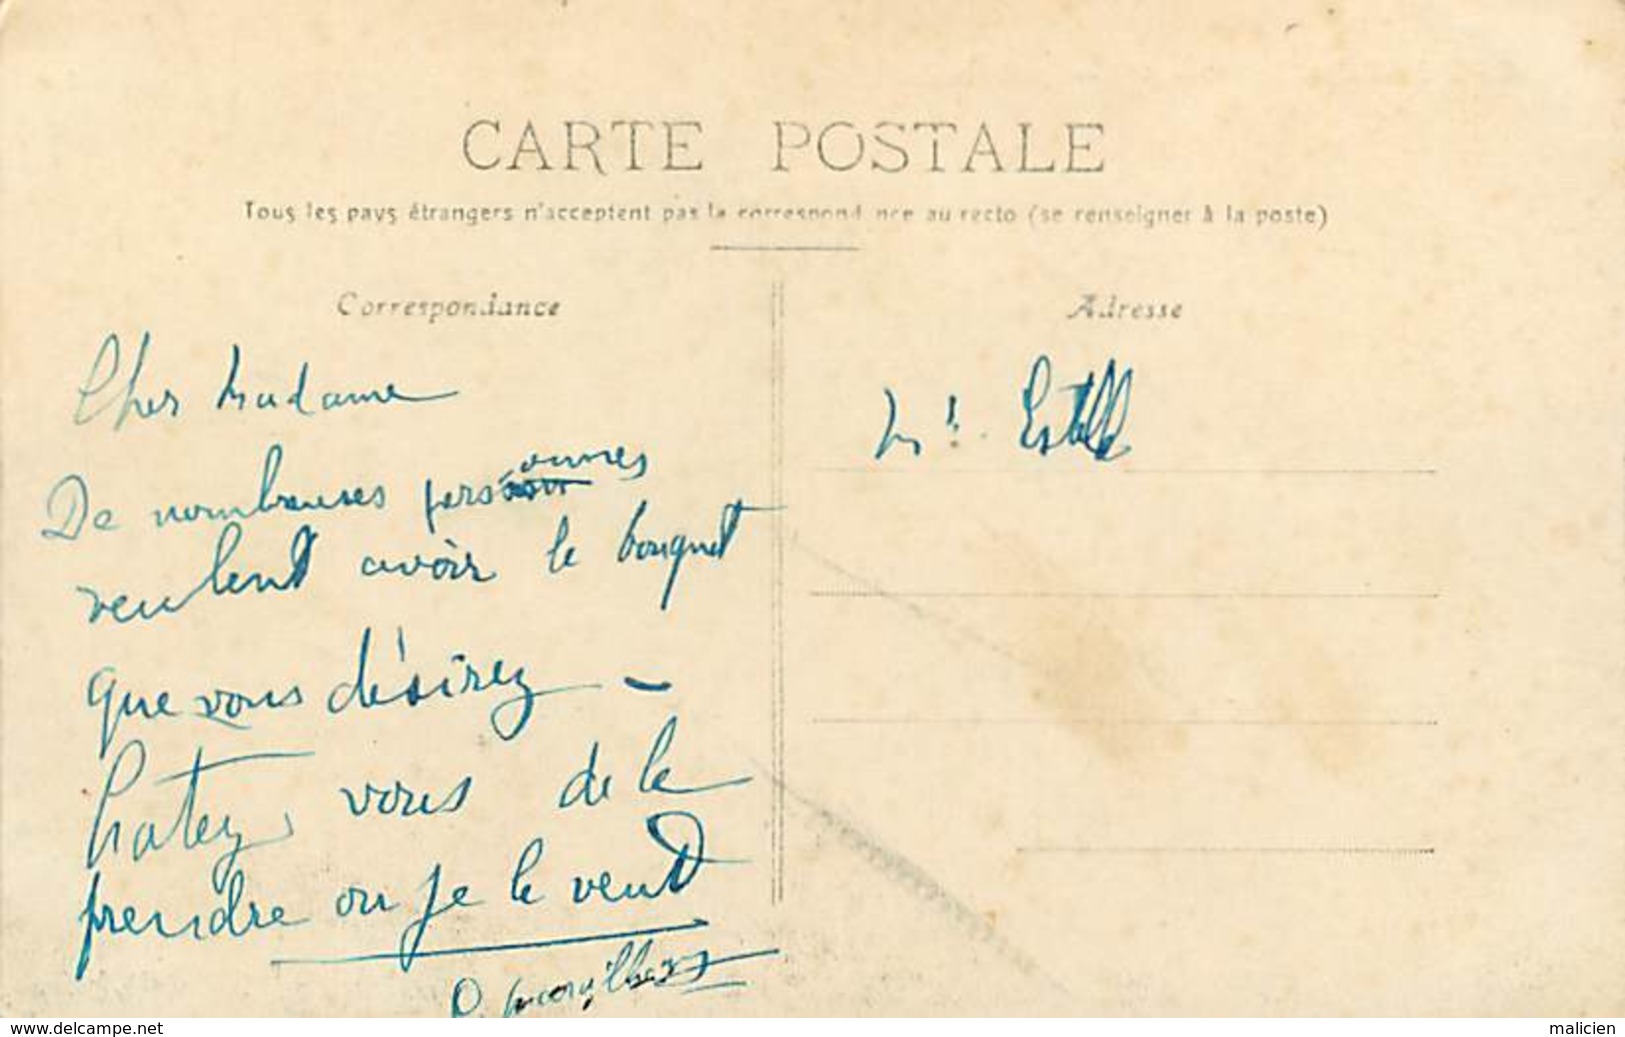 CARTE POSTALE
Tous les pays étrangers n'acceptent pas la correspondance au recto (se renseigner à la poste)
Correspondance
Adresse
Cher Madame
De nombreuses personnes
veulent avoir le bouquet
que vous désirez -
hatez vous de le
prendre ou je le vend
Estelle
www.delcampe.net
malicien